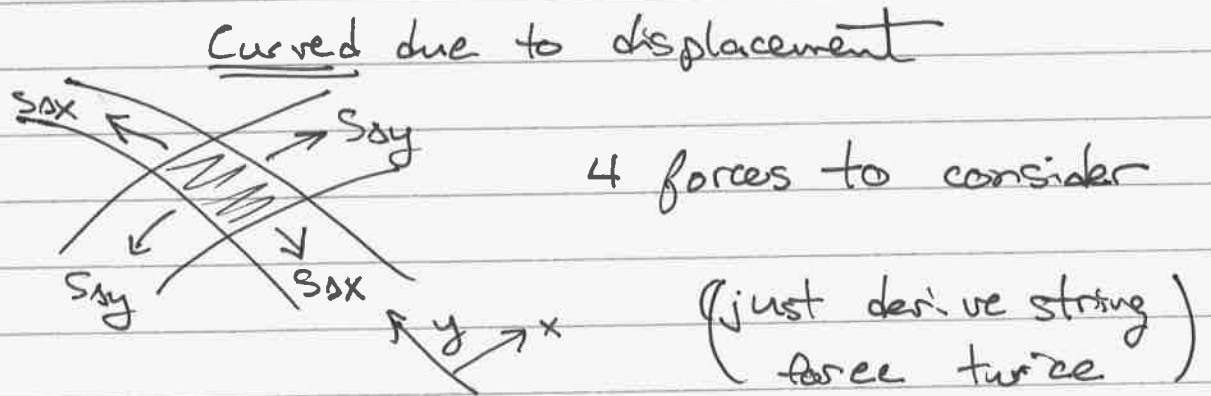 Curved due to displacement
SΔx
SΔy
4 forces to consider
SΔy
SΔx
y
x
(just derive string
force twice)